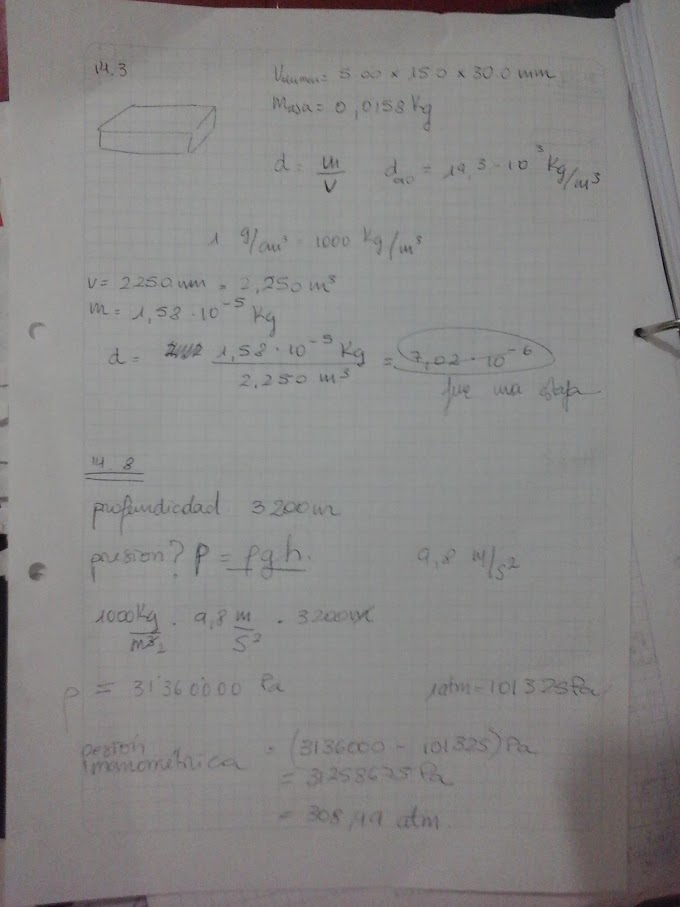 14.3
Volumen = 5.00 x 15.0 x 30.0 mm
Masa = 0,0158 Kg
d = m/v d_oro = 19,3 · 10³ Kg/m³
1 g/cm³ = 1000 Kg/m³
V = 2250 mm = 2,250 m³
m = 1,58 · 10⁻⁵ Kg
d = 1,58 · 10⁻⁵ Kg / 2,250 m³ = 7,02 · 10⁻⁶
fue una stafa
14.8
profundicdad 3200m
presion? P = ρgh. 9,8 m/s²
1000Kg/m³ · 9,8 m/s² · 3200m
P = 31'360'000 Pa 1atm = 101325Pa
presión = (3136000 - 101325) Pa
manométrica
= 31258675 Pa
= 308,49 atm.